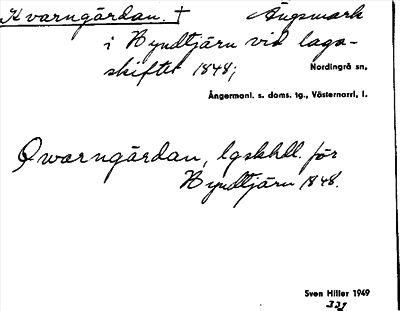 Kvarngärdan. † Ängsmark
i Byndtjärn vid laga-
skiftet 1848;
Nordingrå sn,
Ångermanl. s. doms. tg., Västernorrl, l.
Qwarngärdan, lgskhdl. för
Byndtjärn 1848.
Sven Hiller 1949